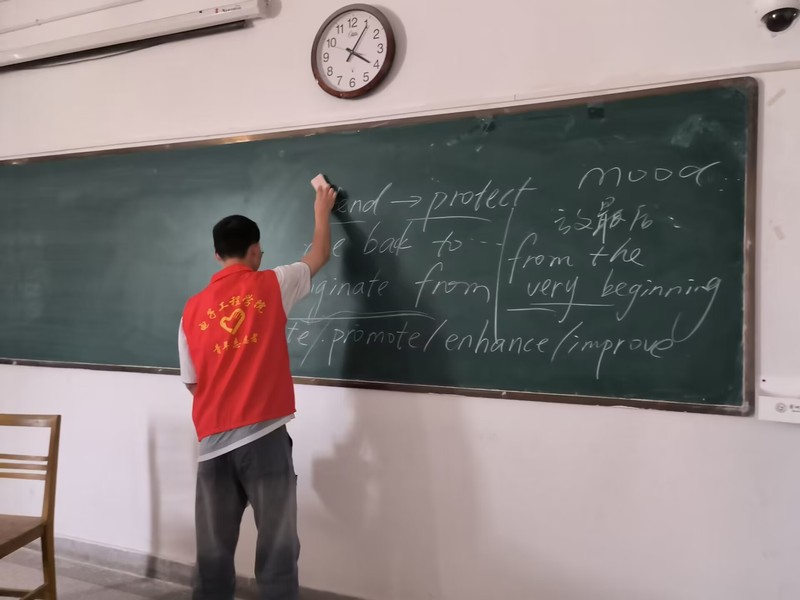 12
1
2
3
4
5
6
7
8
9
10
11
end → protect
back to ...
ginate from
te/promote/enhance/improve
mood
最后
from the
very beginning
电子工程学院
青年志愿者